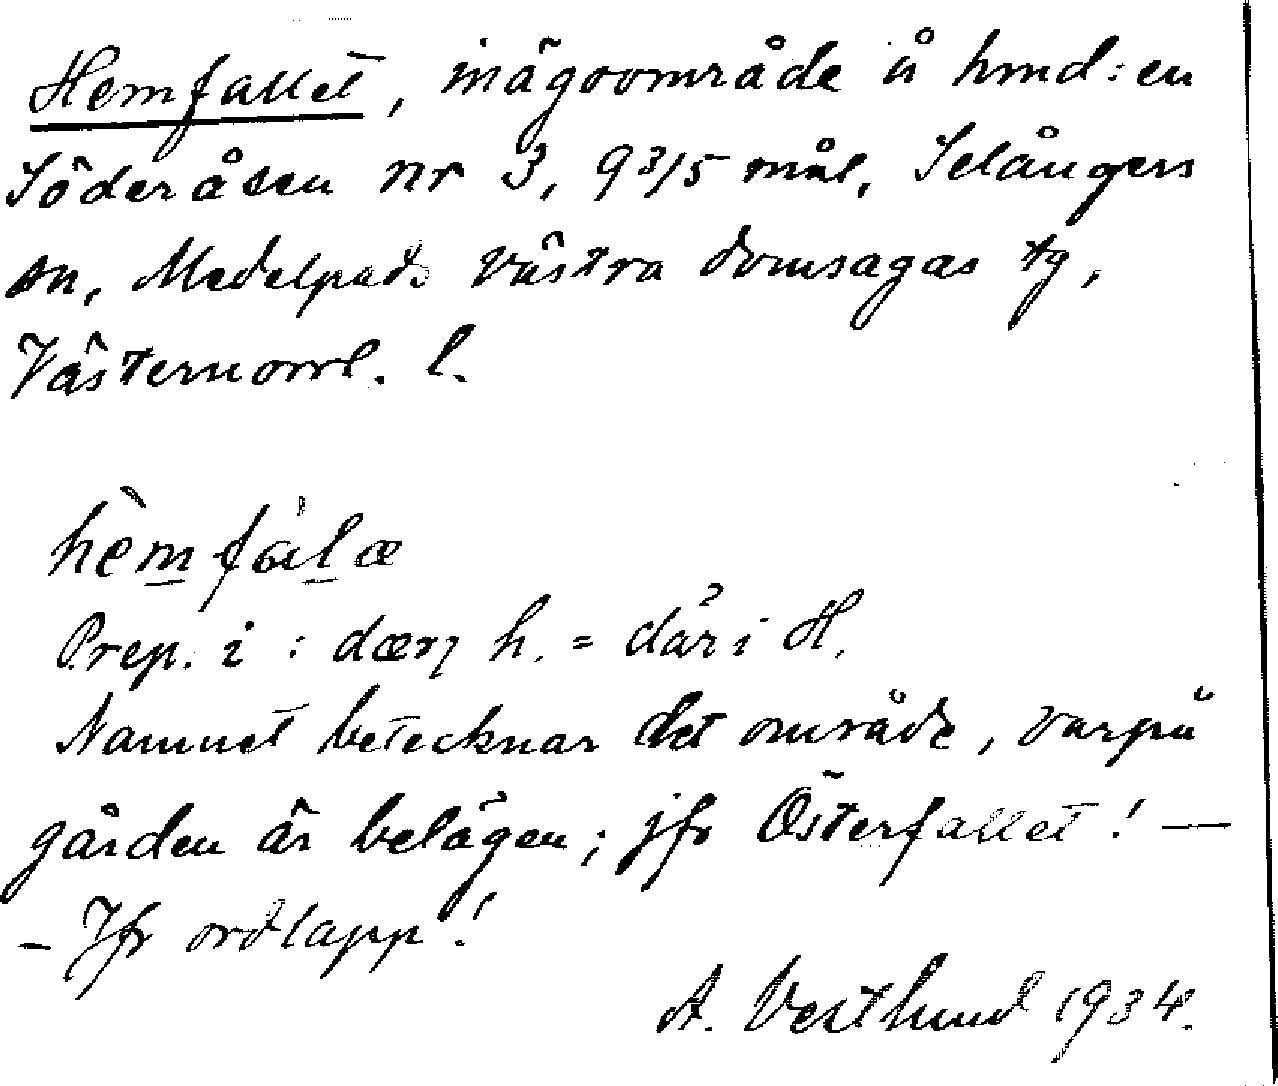 Hemfallet, inägoområde å hmd:en
Söderåsen nr 3, 93/5 mål, Selångers
sn, Medelpads västra domsagas tg,
Västernorrl. l.
hèmfálæ
Prep. i : dærı h. = där i H.
Namnet betecknar det område, varpå
gården är belägen; jfr Österfallet! —
– Jfr ordlapp!
A. Vestlund 1934.